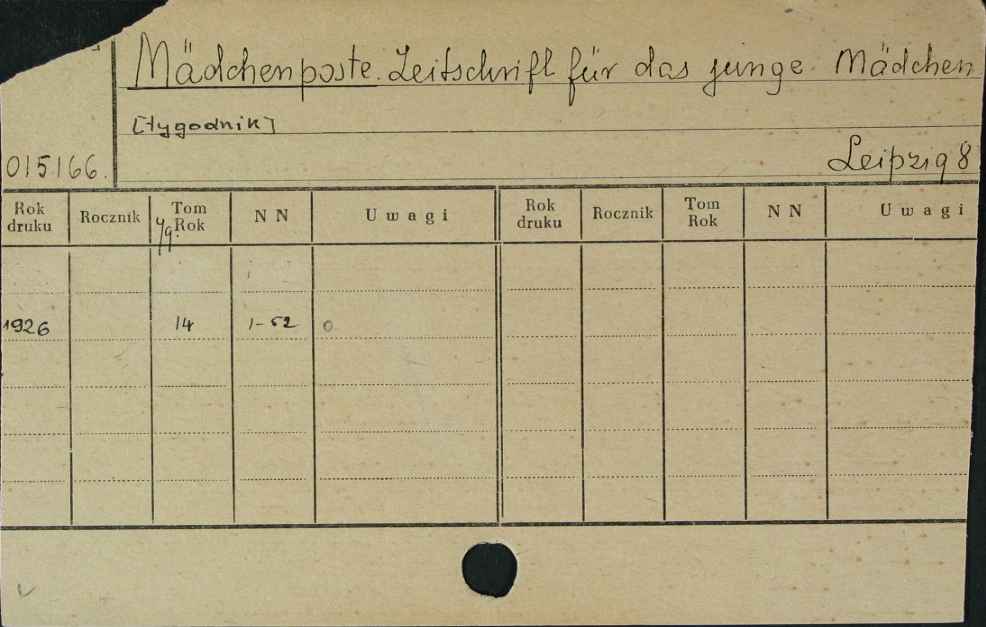 Mädchenposte. Zeitschrift für das junge Mädchen
[tygodnik]
015166.
Leipzig 8
Rok druku Rocznik Tom Rok N N Uwagi Rok druku Rocznik Tom Rok N N Uwagi
1926 14 1-52 0